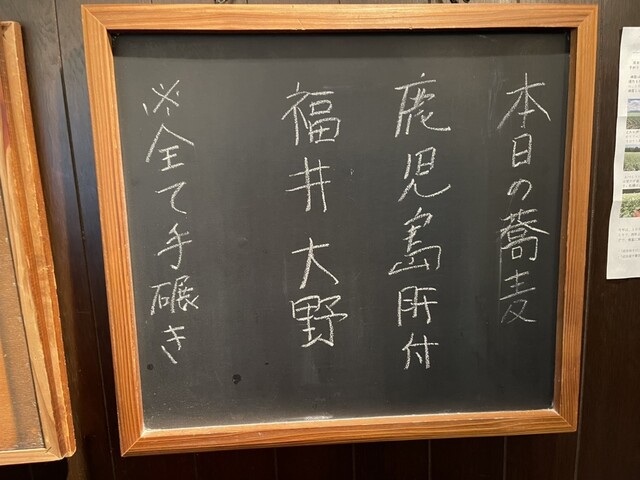 本日の蕎麦
鹿児島肝付
福井 大野
※全て手碾き